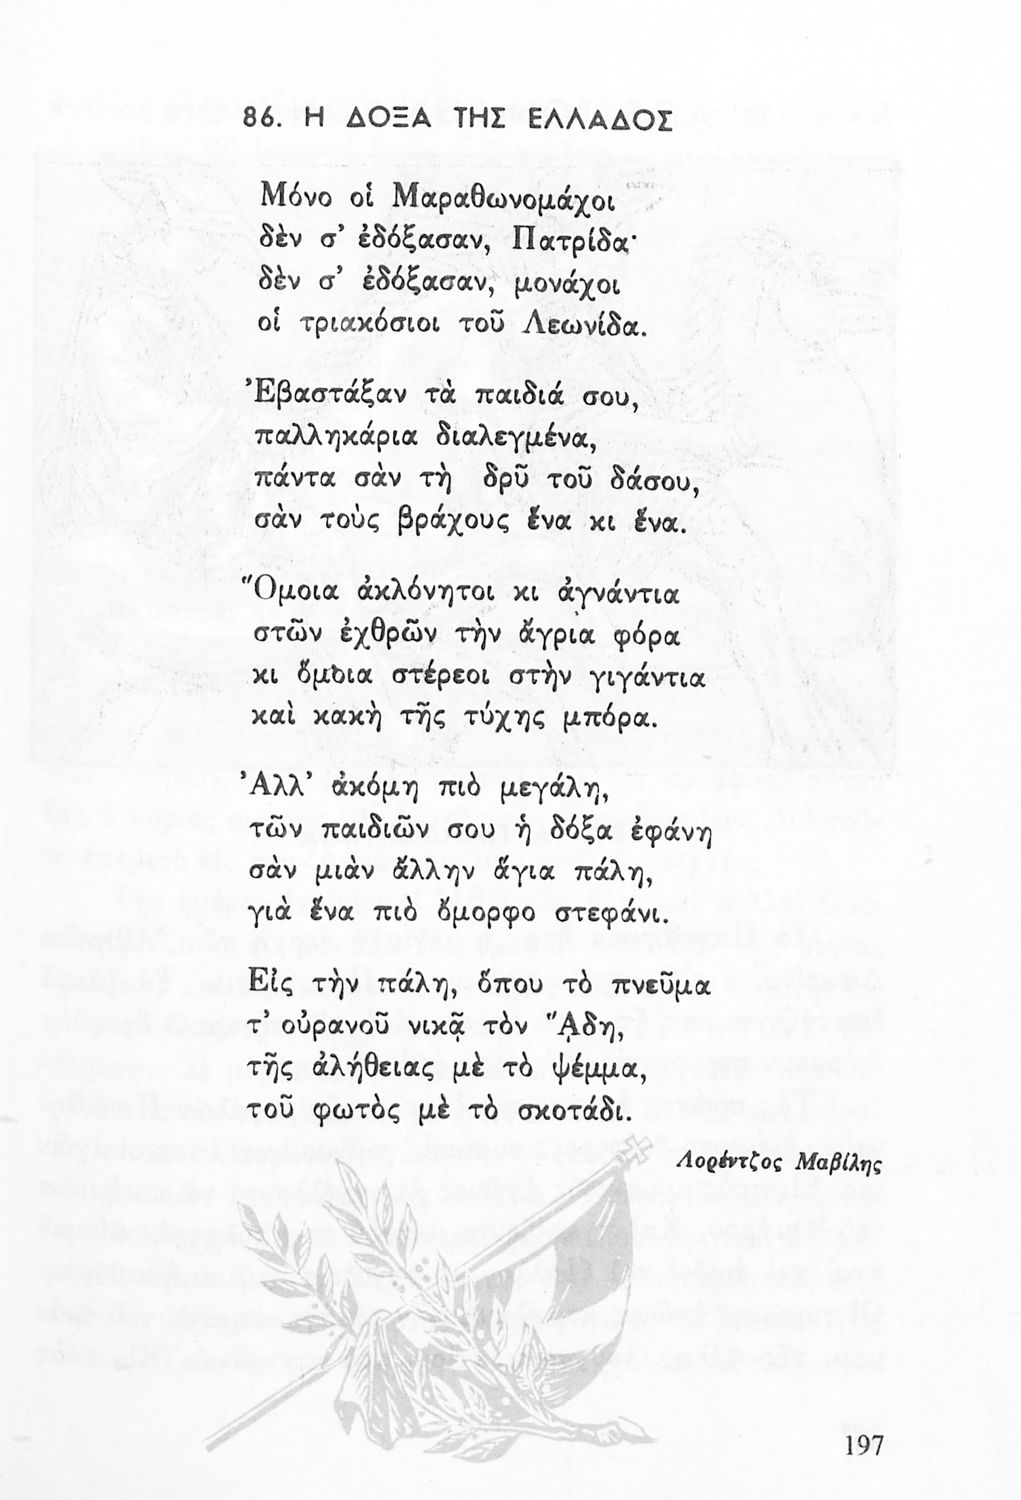 86. Η ΔΟΞΑ ΤΗΣ ΕΛΛΑΔΟΣ
Μόνο οἱ Μαραθωνομάχοι
δὲν σ’ ἐδόξασαν, Πατρίδα·
δὲν σ’ ἐδόξασαν, μονάχοι
οἱ τριακόσιοι τοῦ Λεωνίδα.
Ἐβαστάξαν τὰ παιδιά σου,
παλληκάρια διαλεγμένα,
πάντα σὰν τὴ δρῦ τοῦ δάσου,
σὰν τοὺς βράχους ἕνα κι ἕνα.
Ὅμοια ἀκλόνητοι κι ἀγνάντια
στῶν ἐχθρῶν τὴν ἄγρια φόρα
κι ὅμοια στέρεοι στὴν γιγάντια
καὶ κακὴ τῆς τύχης μπόρα.
Ἀλλ’ ἀκόμη πιὸ μεγάλη,
τῶν παιδιῶν σου ἡ δόξα ἐφάνη
σὰν μιὰν ἄλλην ἅγια πάλη,
γιὰ ἕνα πιὸ ὄμορφο στεφάνι.
Εἰς τὴν πάλη, ὅπου τὸ πνεῦμα
τ’ οὐρανοῦ νικᾷ τὸν ᾍδη,
τῆς ἀλήθειας μὲ τὸ ψέμμα,
τοῦ φωτὸς μὲ τὸ σκοτάδι.
Λορέντζος Μαβίλης
197